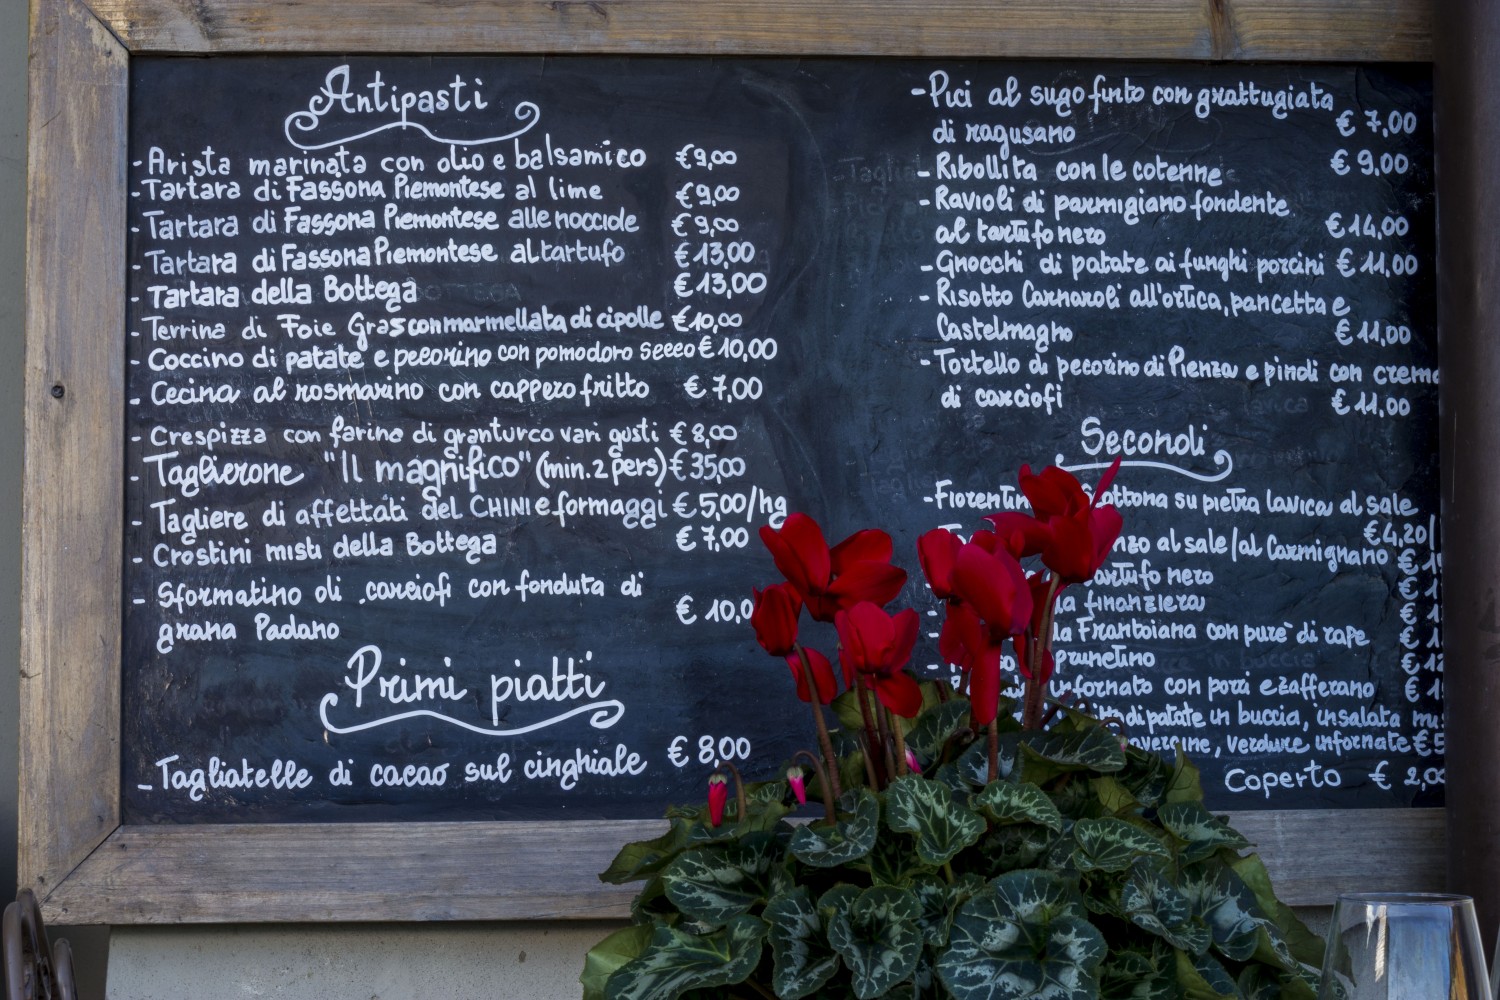 Antipasti
- Arista marinata con olio e balsamico €9,00
- Tartara di Fassona Piemontese al lime €9,00
- Tartara di Fassona Piemontese alle nocciole €9,00
- Tartara di Fassona Piemontese al tartufo €13,00
- Tartara della Bottega €13,00
- Terrina di Foie Gras con marmellata di cipolle €10,00
- Coccino di patate e pecorino con pomodoro secco €10,00
- Cecina al rosmarino con cappero fritto €7,00
- Crespizza con farina di granturco vari gusti €8,00
- Taglierone "Il magnifico" (min. 2 pers) €35,00
- Tagliere di affettati del CHINI e formaggi €5,00/hg
- Crostini misti della Bottega €7,00
- Sformatino di carciofi con fonduta di
grana Padano €10,0
Primi piatti
- Tagliatelle di cacao sul cinghiale €8,00
- Pici al sugo finto con grattugiata
di ragusano €7,00
- Ribollita con le cotenne €9,00
- Ravioli di parmigiano fondente
al tartufo nero €14,00
- Gnocchi di patate ai funghi porcini €11,00
- Risotto Carnaroli all'ortica, pancetta e
Castelmagno €11,00
- Tortello di pecorino di Pienza e pinoli con crema
di carciofi €11,00
Secondi
- Fiorentin ottona su pietra lavica al sale
€4,20/
nzo al sale/al Carmignano €1
artufo nero €1
la finanziera €1
la Frantoiana con purè di rape €1
prunetino €12
infornato con porri e zafferano €1
di patate in buccia, insalata
verdure infornate €5
Coperto €2,00